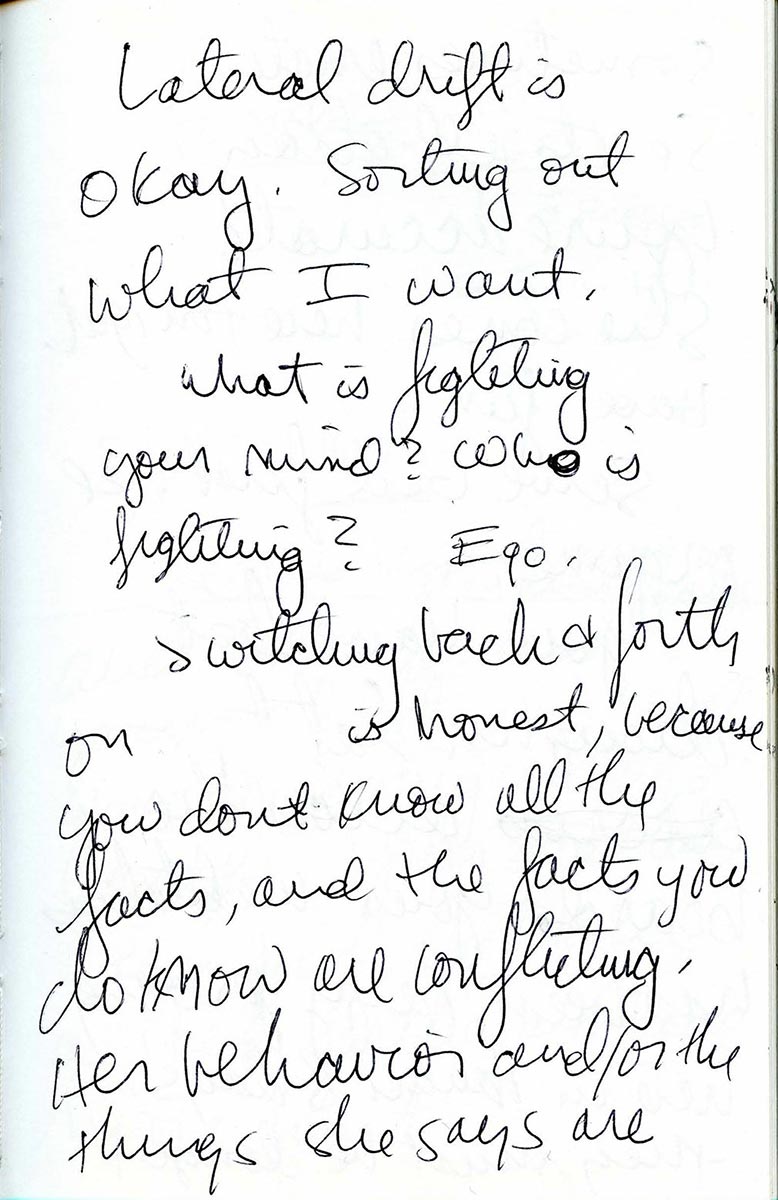 Lateral drift is
okay. Sorting out
what I want.
What is fighting
your mind? Who is
fighting? Ego.
Switching back & forth
on is honest, because
you dont know all the
facts, and the facts you
do know are conflicting.
Her behavior and/or the
things she says are